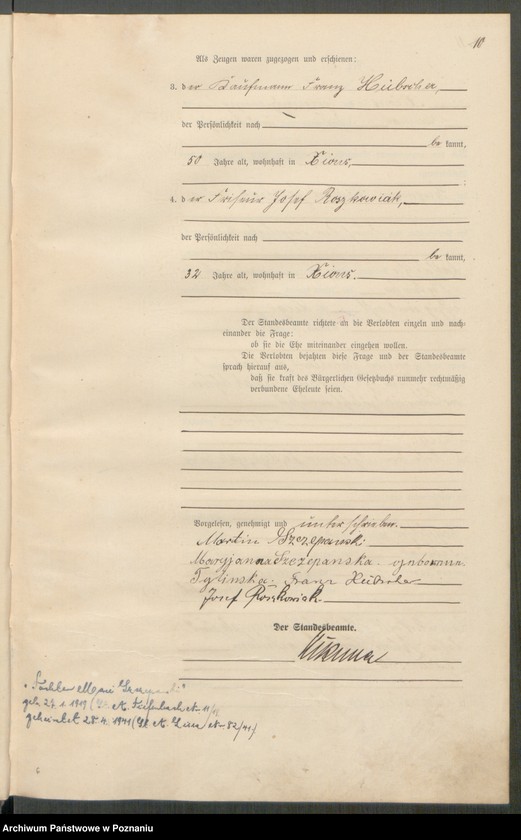 10
Als Zeugen waren zugezogen und erschienen:
3. der Kaufmann Franz Heibscher,
der Persönlichkeit nach
be kannt,
50 Jahre alt, wohnhaft in Xions,
;
4. der Friseur Josef Roszkowiak,
der Persönlichkeit nach
be kannt,
32 Jahre alt, wohnhaft in Xions.
Der Standesbeamte richtete an die Verlobten einzeln und nach-
einander die Frage:
ob sie die Ehe miteinander eingehen wollen.
Die Verlobten bejahten diese Frage und der Standesbeamte
sprach hierauf aus,
daß sie kraft des Bürgerlichen Gesetzbuchs nunmehr rechtmäßig
verbundene Eheleute seien.
Vorgelesen, genehmigt und unterschrieben.
Martin Szczepanski
Maryjanna Szczepanska geborene
Franz
Josef Roszkowiak
Der Standesbeamte.
Tochter
geb. 27. 1. 1919
geheiratet 28. 4. 1941 82/41)
Archiwum Państwowe w Poznaniu